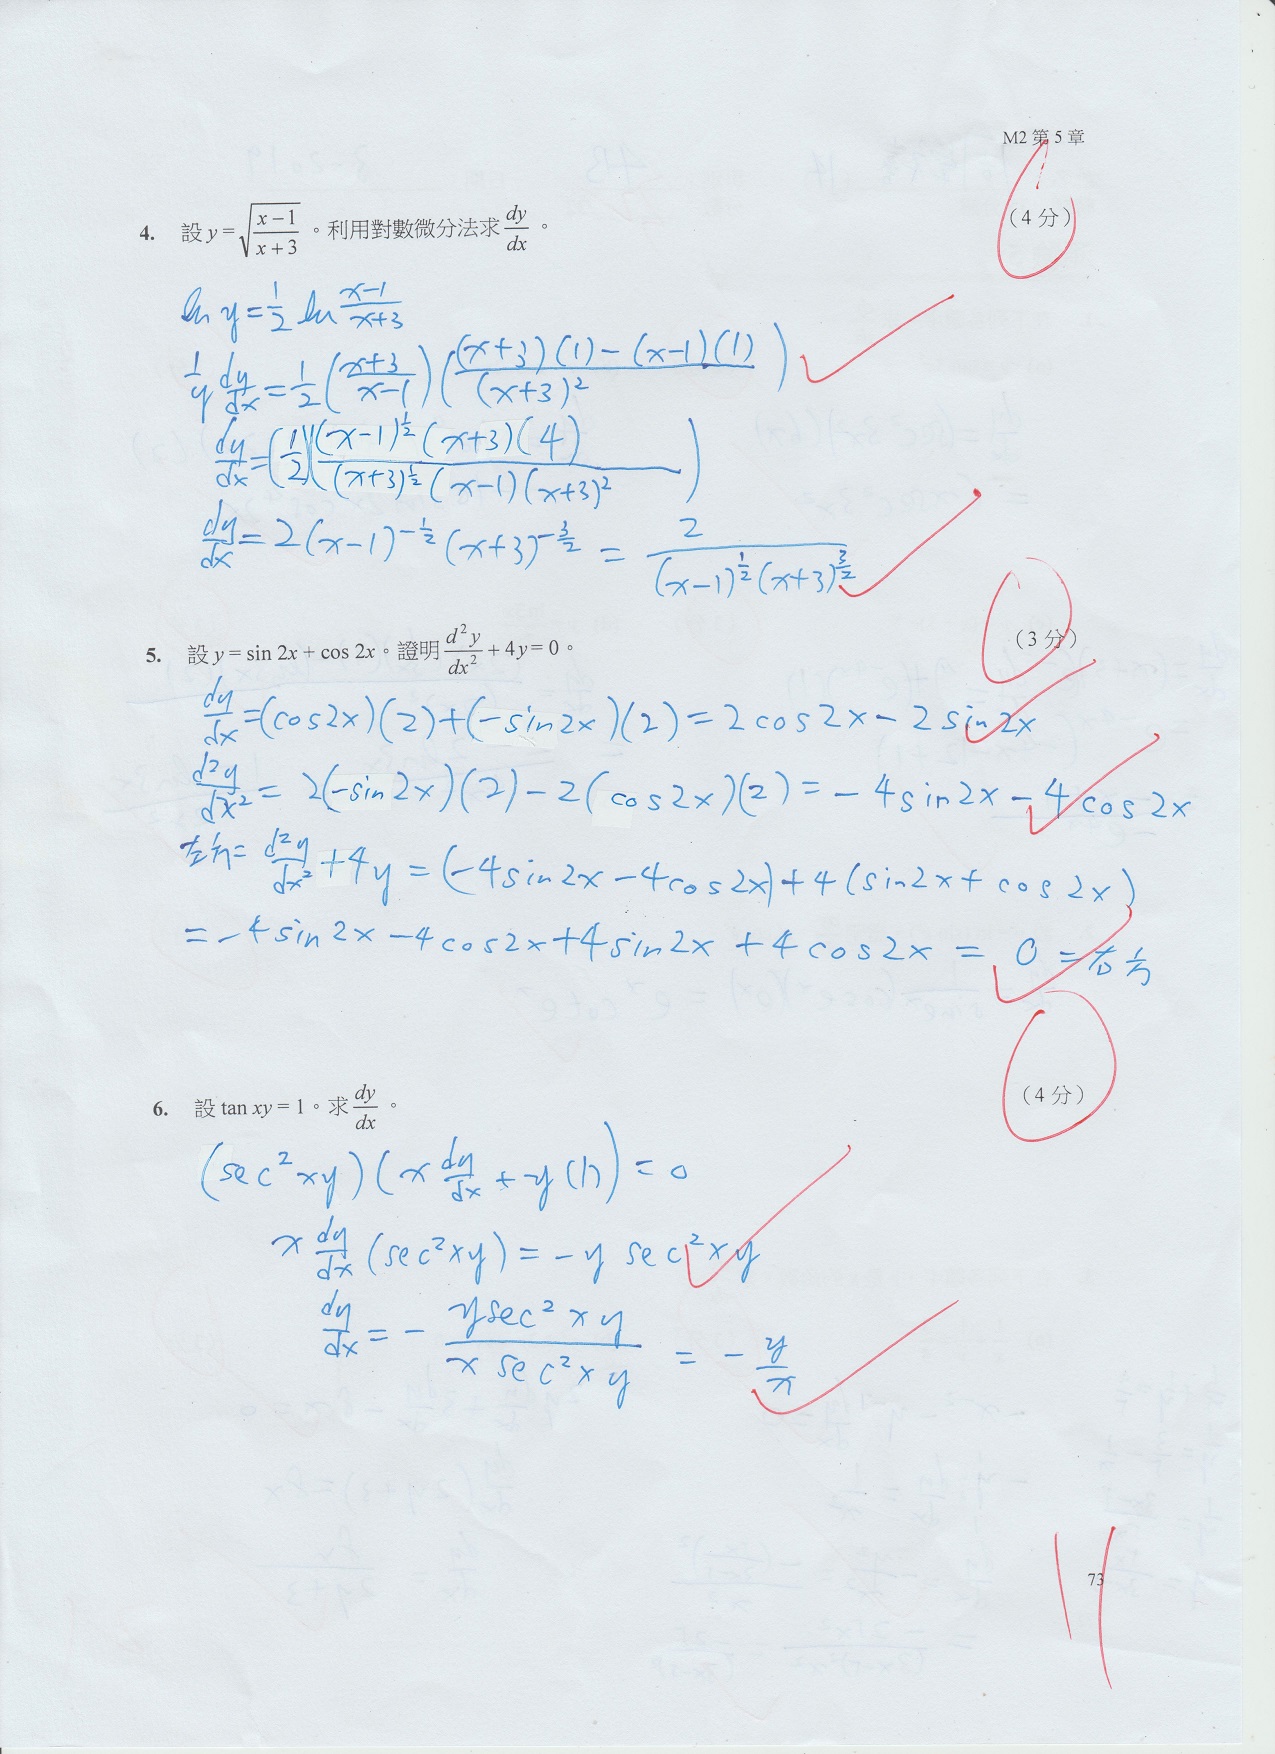 M2 第 5 章
4. 設 y = √((x−1)/(x+3))。利用對數微分法求 dy/dx。 (4 分)
ln y = 1/2 ln (x−1)/(x+3)
1/y dy/dx = 1/2 ((x+3)/(x−1)) (((x+3)(1) − (x−1)(1))/(x+3)²)
dy/dx = (1/2)(((x−1)^½ (x+3)(4))/((x+3)^½ (x−1)(x+3)²))
dy/dx = 2(x−1)^(−1/2) (x+3)^(−3/2) = 2/((x−1)^(1/2) (x+3)^(3/2))
5. 設 y = sin 2x + cos 2x。證明 d²y/dx² + 4y = 0。 (3 分)
dy/dx = (cos2x)(2) + (−sin2x)(2) = 2cos2x − 2sin2x
d²y/dx² = 2(−sin2x)(2) − 2(cos2x)(2) = −4sin2x − 4cos2x
左方 = d²y/dx² + 4y = (−4sin2x − 4cos2x) + 4(sin2x + cos2x)
= −4sin2x − 4cos2x + 4sin2x + 4cos2x = 0 = 右方
6. 設 tan xy = 1。求 dy/dx。 (4 分)
(sec²xy)(x dy/dx + y(1)) = 0
x dy/dx (sec²xy) = −y sec²xy
dy/dx = − (y sec²xy)/(x sec²xy) = − y/x
11
73